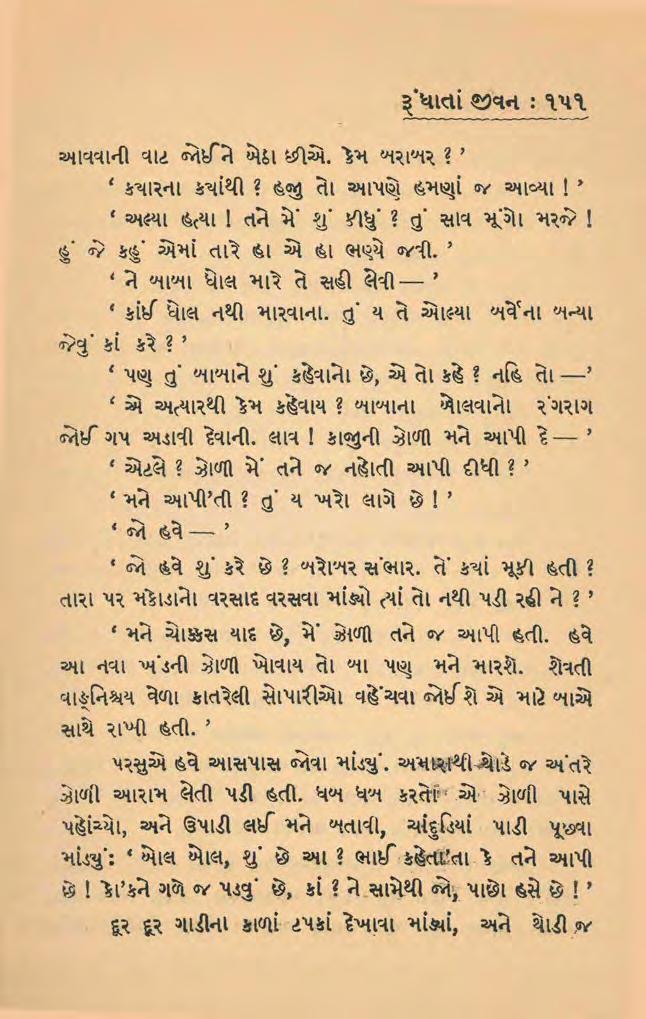 રૂંધાતાં જીવન : ૧૫૧
આવવાની વાટ જોઈને બેઠા છીએ. કેમ બરાબર ? ’
‘ ક્યારના ક્યાંથી ? હજી તો આપણે હમણાં જ આવ્યા ! ’
‘ અલ્યા હત્યા ! તને મેં શું કીધું ? તું સાવ મૂંગો મરજે !
હું જે કહું એમાં તારે હા એ હા ભણ્યે જવી. ’
‘ ને બાબા ધોલ મારે તે સહી લેવી— ’
‘ કાંઈ ધોલ નથી મારવાના. તું ય તે ઓલ્યા બર્વેના બન્યા
જેવું કાં કરે ? ’
‘ પણ તું બાબાને શું કહેવાનો છે, એ તો કહે ? નહિ તો —’
‘ એ અત્યારથી કેમ કહેવાય ? બાબાના બોલવાનો રંગરાગ
જોઈ ગપ અડાવી દેવાની. લાવ ! કાજુની ઝોળી મને આપી દે— ’
‘ એટલે ? ઝોળી મેં તને જ નહોતી આપી દીધી ? ’
‘ મને આપી’તી ? તું ય ખરો લાગે છે ! ’
‘ જો હવે— ’
‘ જો હવે શું કરે છે ? બરોબર સંભાર. તેં ક્યાં મૂકી હતી ?
તારા પર મકોડાનો વરસાદ વરસવા માંડ્યો ત્યાં તો નથી પડી રહી ને ? ’
‘ મને ચોક્કસ યાદ છે, મેં ઝોળી તને જ આપી હતી. હવે
આ નવા ખંડની ઝોળી ખોવાય તો બા પણ મને મારશે. શેવતી
વાઙ્નિશ્ચય વેળા કાતરેલી સોપારીઓ વહેંચવા જોઈશે એ માટે બાએ
સાથે રાખી હતી. ’
પરસુએ હવે આસપાસ જોવા માંડ્યું. અમારાથી થોડે જ અંતરે
ઝોળી આરામ લેતી પડી હતી. ધબ ધબ કરતો એ ઝોળી પાસે
પહોંચ્યો, અને ઉપાડી લઈ મને બતાવી, ચાંદુડિયાં પાડી પૂછવા
માંડ્યું: ‘ બોલ બોલ, શું છે આ ? ભાઈ કહેતા’તા કે તને આપી
છે ! કો’કને ગળે જ પડવું છે, કાં ? ને સામેથી જો, પાછો હસે છે ! ’
દૂર દૂર ગાડીના કાળાં ટપકાં દેખાવા માંડ્યાં, અને થોડી જ